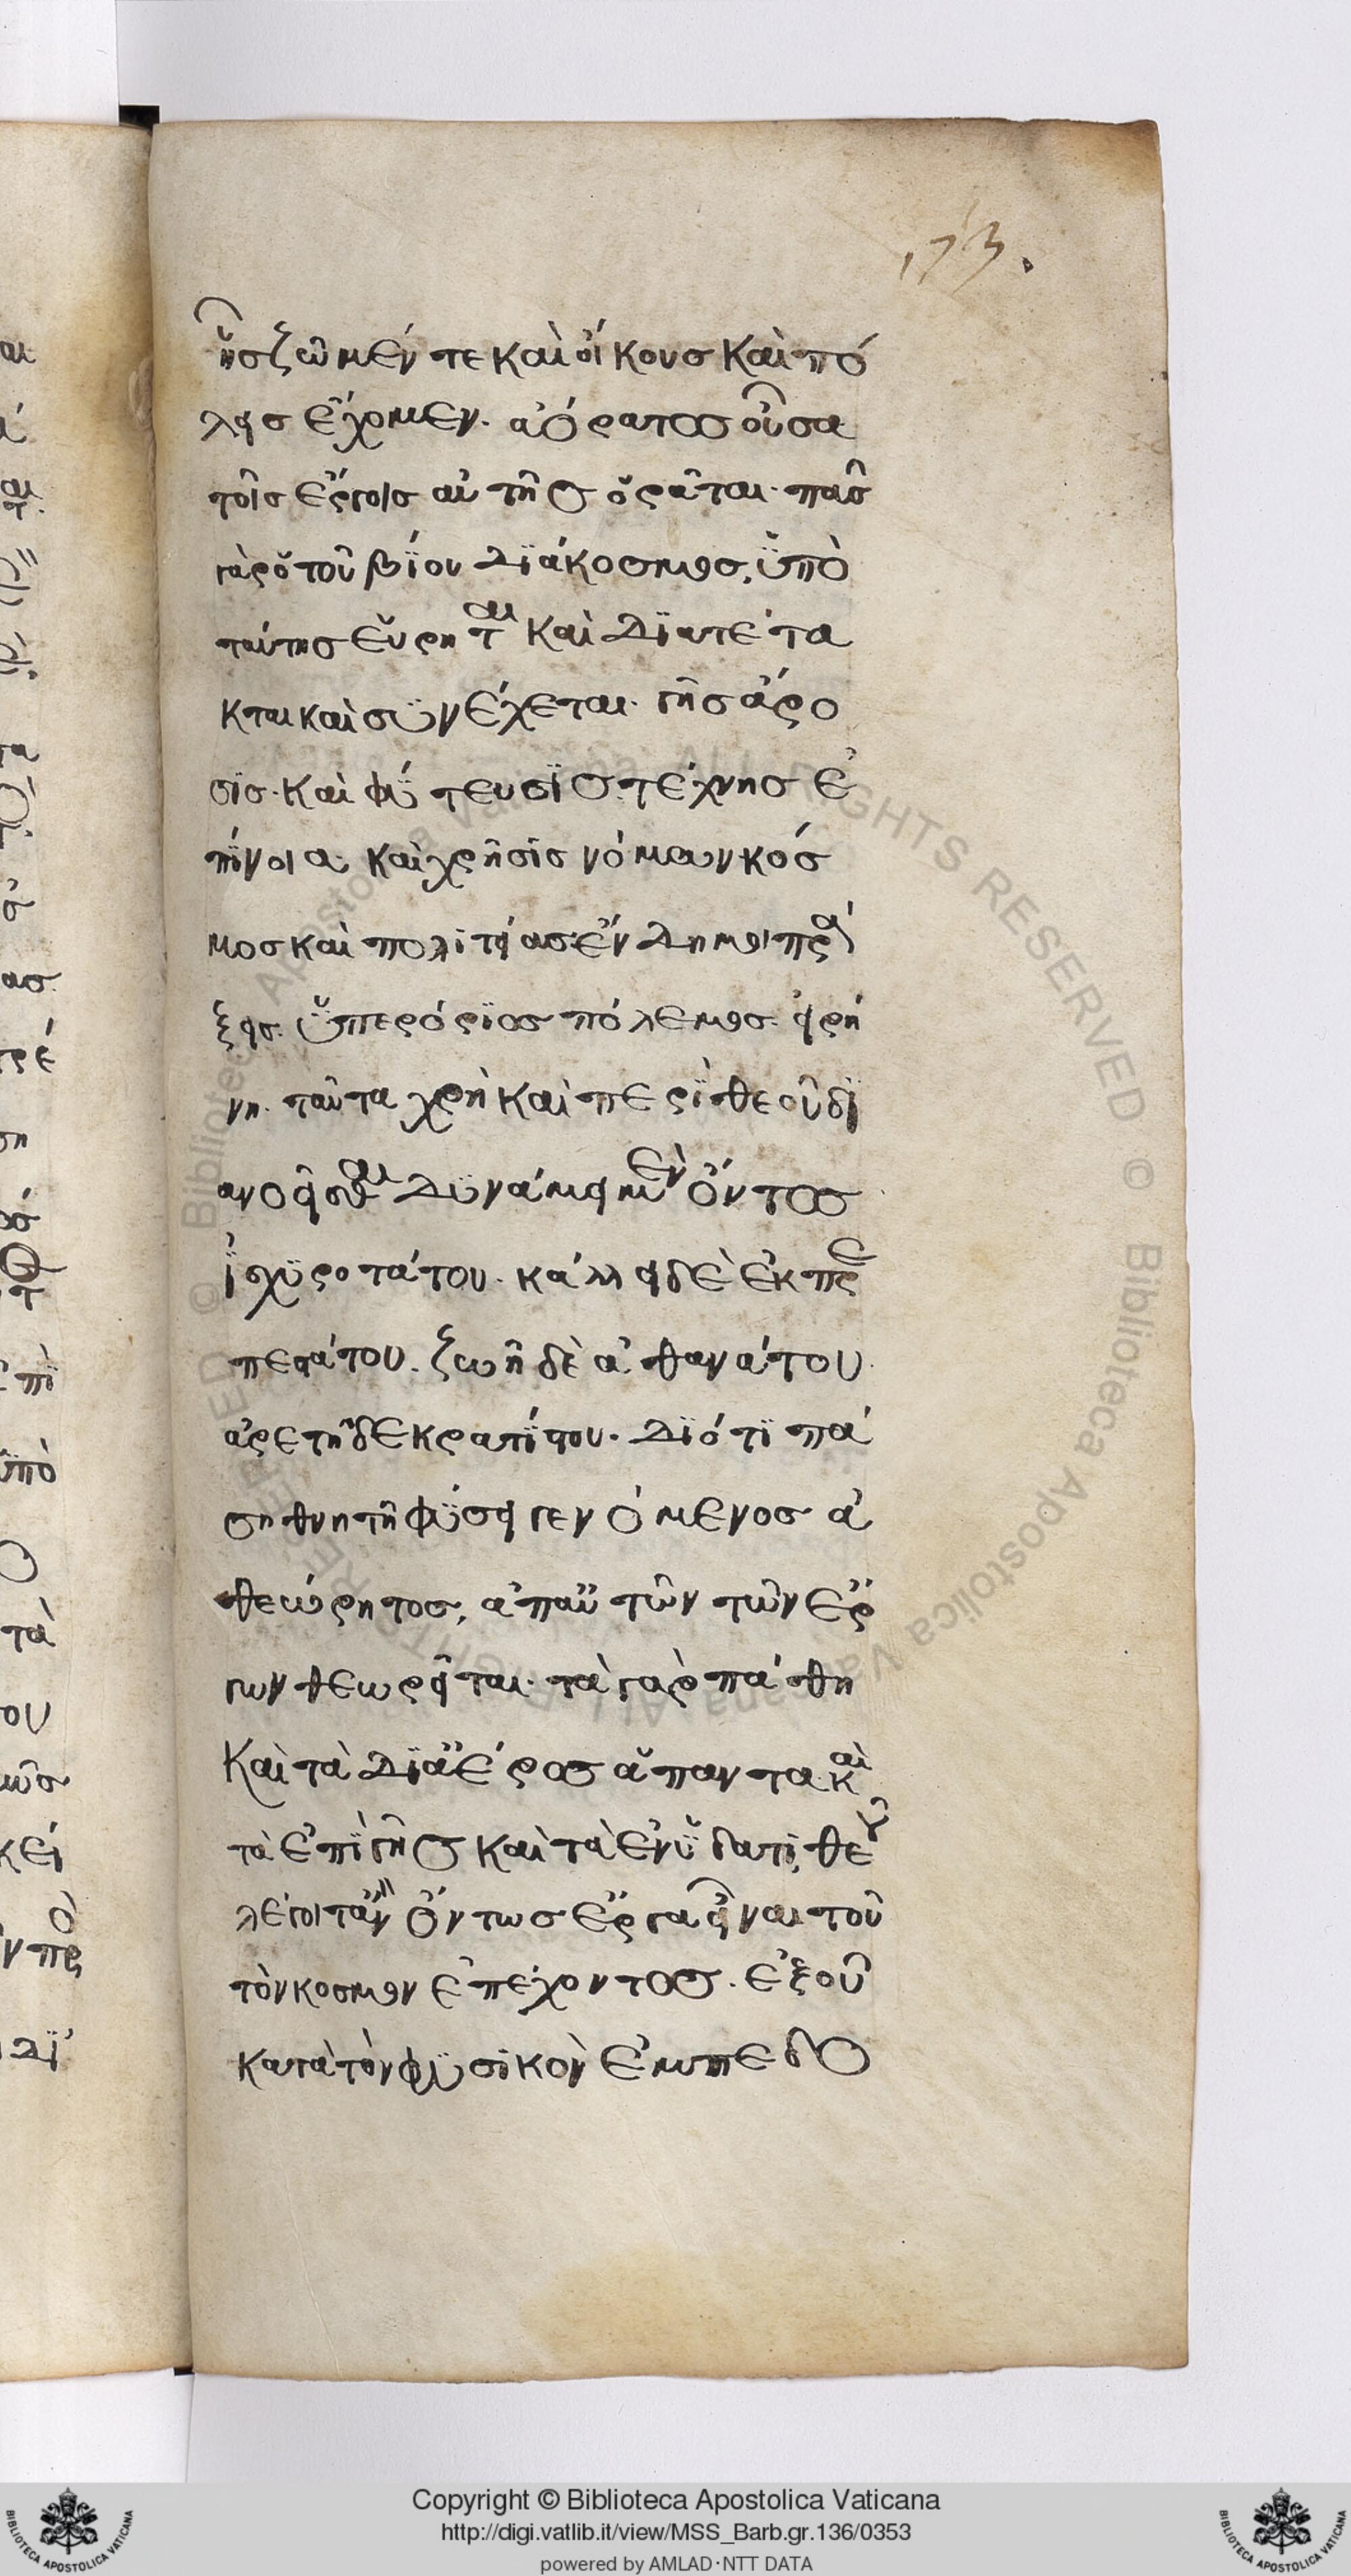 173.
ἧσ ζῶμέν τε καὶ οἴκουσ καὶ πό
λεισ ἔχομεν. ἀόρατοσ οὖσα
τοῖσ ἔργοισ αὐτῆσ ὁρᾶται. πᾶσ
γὰρ ὁ τοῦ βΐου δϊάκοσμοσ, ὑπὸ
ταύτησ εὕρηται καὶ δϊατέτα
κται καὶ συνέχεται. γῆσ ἄρο
σϊσ. καὶ φύτευσϊσ. τέχνησ ἐ
πίνοια. καὶ χρῆσϊσ νόμων κόσ
μοσ καὶ πολιτείασ. ἔνδημοι πρά
ξεισ. ὑπερόρϊοσ πόλεμοσ. εἰρή
νη. ταῦτα χρὴ καὶ περὶ θεοῦ δϊ
ανοεῖσθαι δυνάμει μὲν ὄντοσ
ἰσχυροτάτου. κάλλει δὲ ἐκπρε
πεστάτου. ζωῆ δὲ ἀθανάτου.
ἀρετῆ δὲ κρατίστου. δϊότϊ πά
ση θνητῆ φύσει γενόμενοσ ἀ
θεώρητοσ, ἀπ αὐτῶν τῶν ἔρ
γων θεωρεῖται. τὰ γὰρ πάθη
καὶ τὰ δϊ ἀέροσ ἅπαντα καὶ
τὰ ἐπὶ γῆσ καὶ τὰ ἐν ὕδατϊ, θεοῦ
λέγοιτ ἂν ὄντωσ ἔργα εἶναι τοῦ
τὸν κοσμον ἐπέχοντοσ. ἐξ οὗ
κατὰ τὸν φυσϊκὸν ἐμπεδο
Copyright © Biblioteca Apostolica Vaticana
http://digi.vatlib.it/view/MSS_Barb.gr.136/0353
powered by AMLAD·NTT DATA